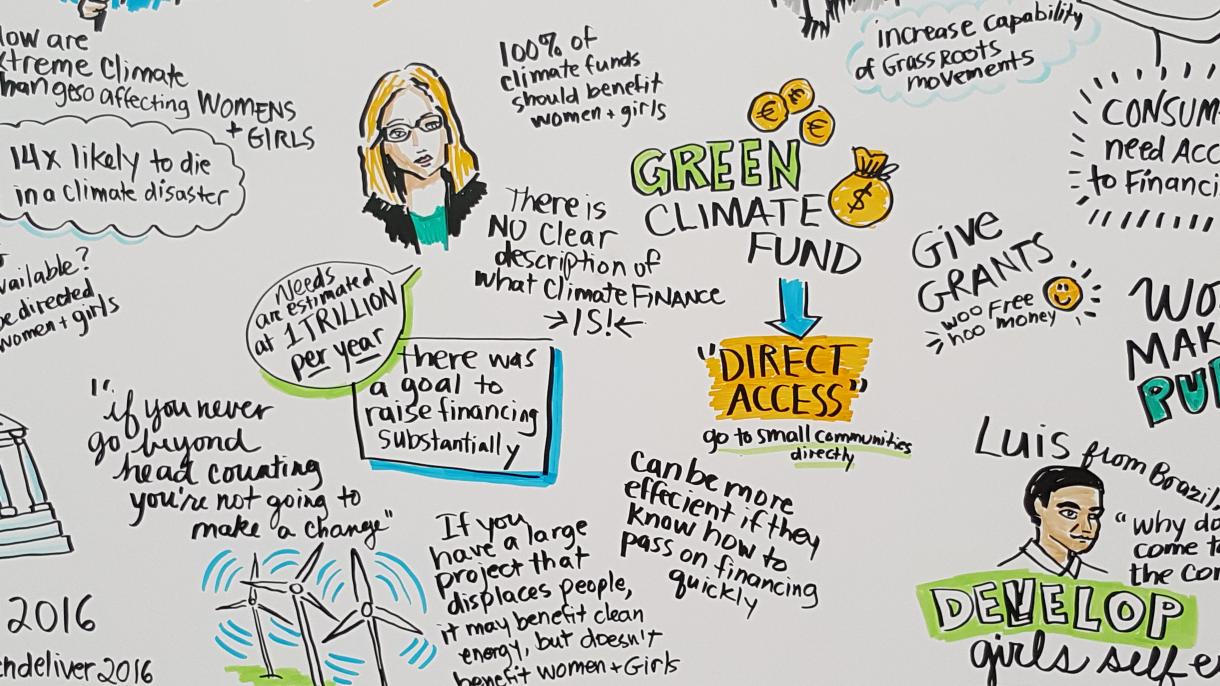 How are
Extreme Climate
Changes so affecting WOMENS
+ GIRLS
14x likely to die
in a climate disaster
available?
be directed
women + girls
"if you never
go beyond
head counting
you're not going to
make a change"
2016
Needs
are estimated
at 1 TRILLION
per year
there was
a goal to
raise financing
substantially
100% of
climate funds
should benefit
women + girls
There is
NO Clear
description of
what Climate FINANCE
→IS!←
If you
have a large
project that
displaces people,
it may benefit clean
energy, but doesn't
benefit women + Girls
GREEN
CLIMATE
FUND
€
€
€
$
"DIRECT
ACCESS"
go to small communities
directly
Can be more
effecient if they
know how to
pass on financing
quickly
increase capability
of GrassRoots
movements
GIVE
GRANTS
woo Free
hoo money
need
to
Luis from Brazil,
"why do
come
the
DEVELOP
girls self